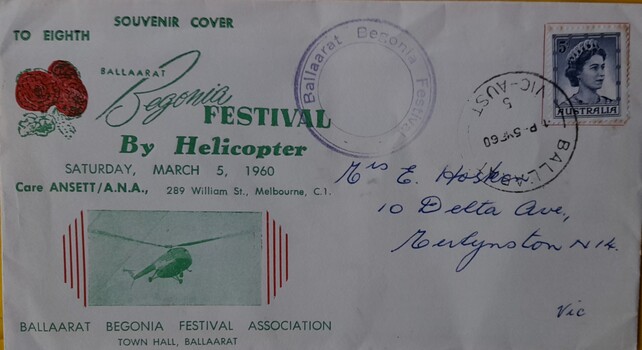 SOUVENIR COVER
TO EIGHTH
BALLAARAT
Begonia
FESTIVAL
By Helicopter
SATURDAY, MARCH 5, 1960
Care ANSETT/A.N.A., 289 William St., Melbourne, C.1.
BALLAARAT BEGONIA FESTIVAL ASSOCIATION
TOWN HALL, BALLAARAT
Ballaarat Begonia Festival
VIC-AUST
5
BALLAARAT
5d
AUSTRALIA
Mrs E.
10 Delta Ave,
Merlynston N14.
Vic